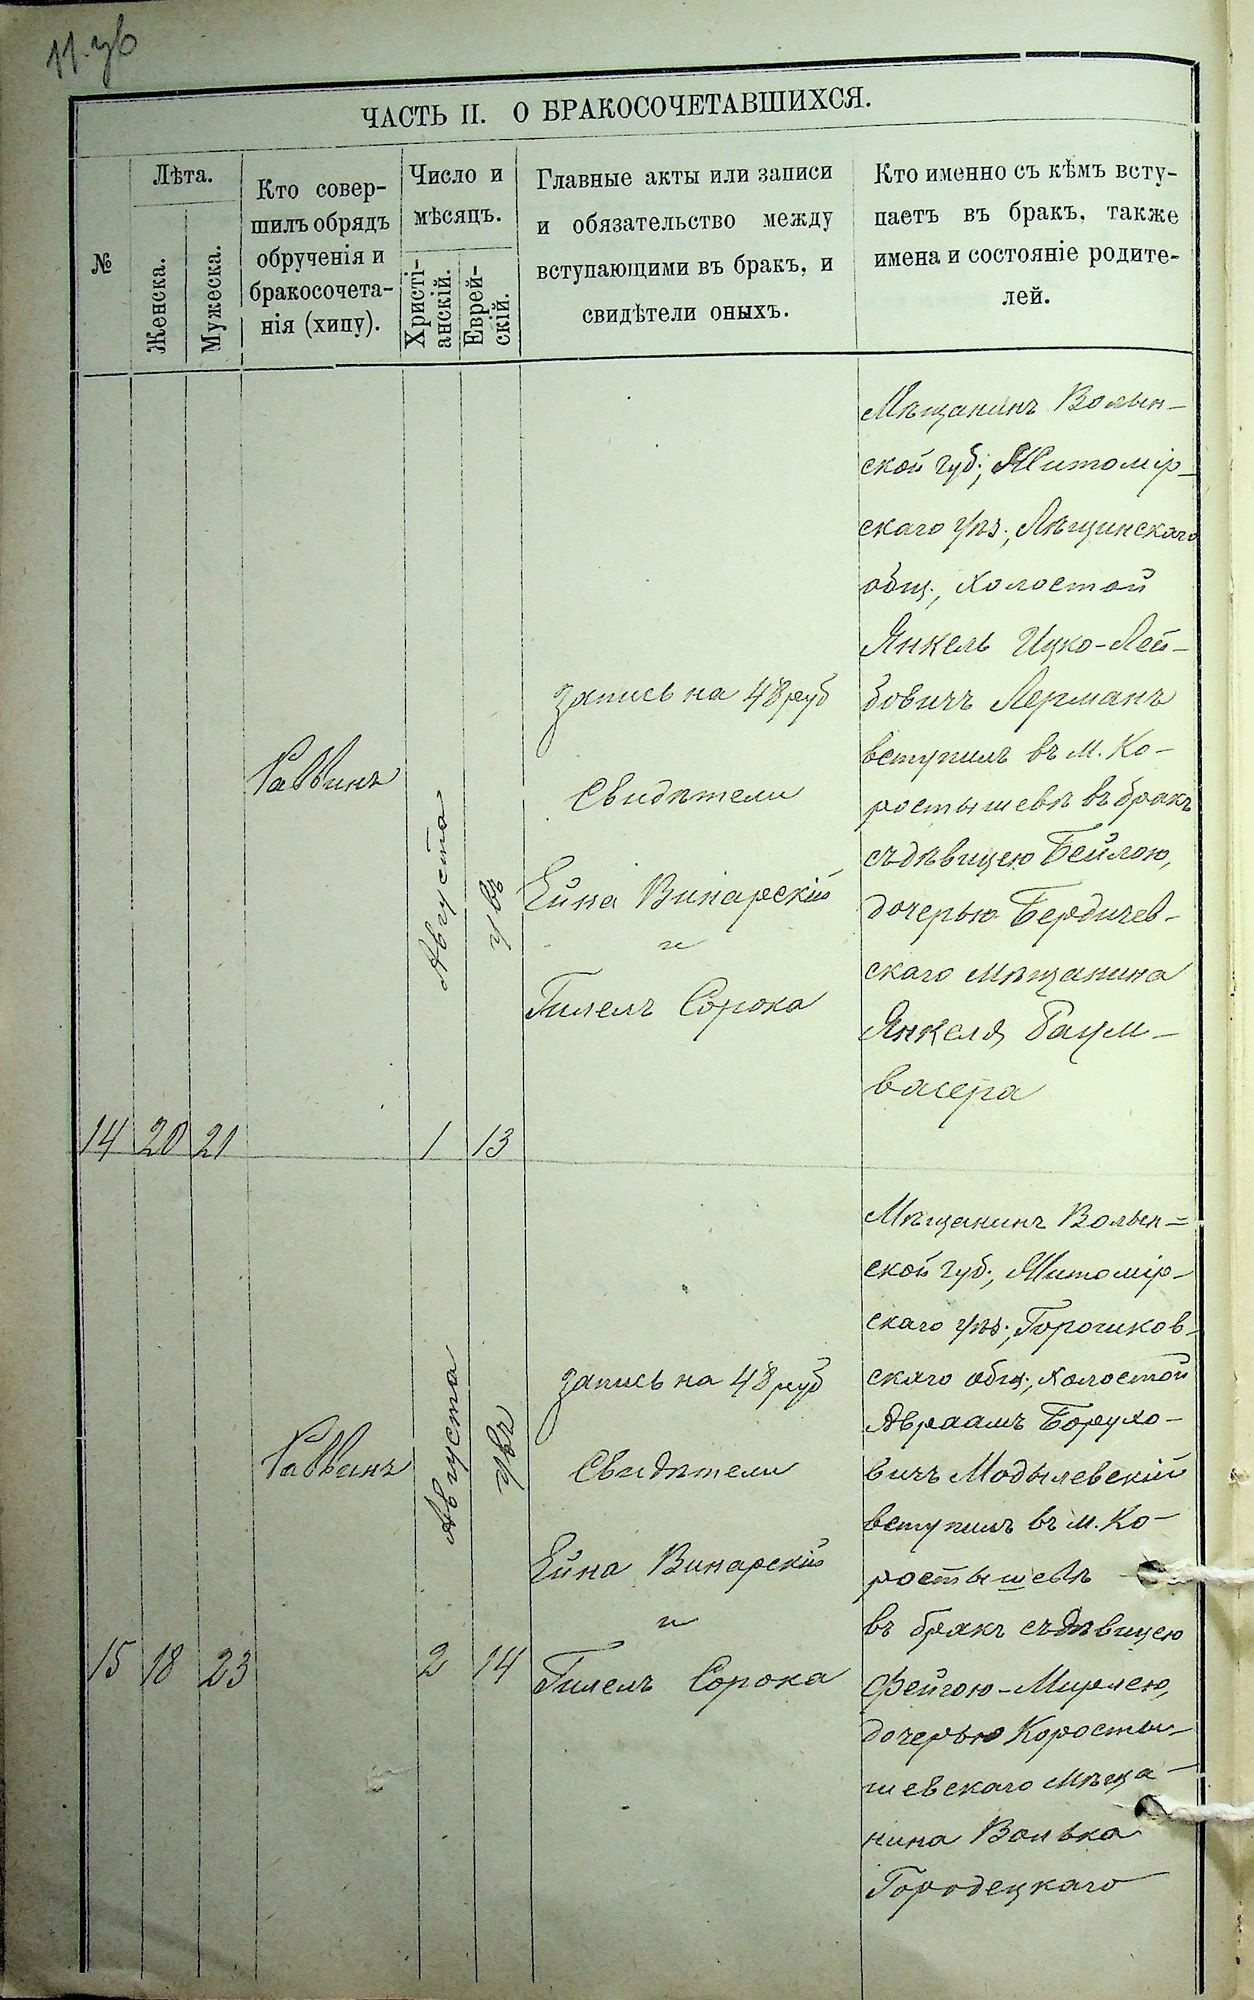 11. зв
ЧАСТЬ II. О БРАКОСОЧЕТАВШИХСЯ.
№
Лѣта.
Женска.
Мужеска.
Кто совер-
шилъ обрядъ
обрученія и
бракосочета-
нія (хипу).
Число и
мѣсяцъ.
Христі-
анскій.
Еврей-
скій.
Главные акты или записи
и обязательство между
вступающими въ бракъ, и
свидѣтели оныхъ.
Кто именно съ кѣмъ всту-
паетъ въ бракъ, также
имена и состояніе родите-
лей.
14
20
21
Раввинъ
Августа
1
13
запись на 48 руб
Свидѣтели
Ейна Винарскій
и
Гилелъ Сорока
Мѣщанинъ Волын-
ской губ., Житомір-
скаго уѣз., Лѣщинскаго
общ., холостой
Янкель Ицко-Лей-
бовичъ Лерманъ
вступилъ въ м. Ко-
ростышевѣ въ бракъ
съ дѣвицею Бейлою,
дочерью Бердичев-
скаго мѣщанина
Янкеля Баум-
васера
15
18
23
Раввинъ
Августа
2
14
запись на 48 руб
Свидѣтели
Ейна Винарскій
и
Гилелъ Сорока
Мѣщанинъ Волын=
ской губ., Житомір-
скаго уѣз., Горошков-
скаго общ., холостой
Авраамъ Борухо-
вичъ Модылевскій
вступилъ въ м. Ко-
ростышевѣ
въ бракъ съ дѣвицею
Фейгою-Мирлею,
дочерью Коросты-
шевскаго мѣща-
нина Волька
Городецкаго